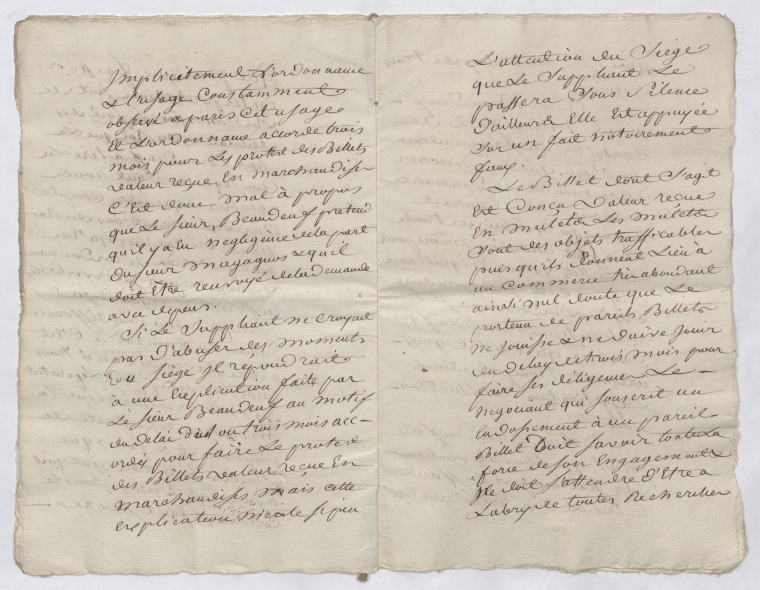 Implicitement L'ordonnance
& L'usage Constamment
observé a paris Cet usage
Et L'ordonnance accorde trois
mois pour Les protest des Billets
valeur reçue En marchandises
C'est donc mal à propos
que Le Sieur Beaudeuf pretend
qu'il y a Eu negligence de la part
du sieur mayagnos & qu'il
doit Etre renvoyé de la demande
avec depens.
Si Le Suppliant ne croyait
pas D'abuser des moments
du Siége Il répondrait
à une Explication faite par
Le Sieur Beaudeuf au motif
du délai d'un ou trois mois acc-
ordés pour faire Le protest
des Billets valeur reçue En
marchandises, mais cette
explication mérite si peu
L'attention du Siége
que Le Suppliant Le
passera Sous Silence
D'ailleurs Elle Est appuyée
sur un fait notoirement
faux.
Le Billet dont S'agit
Est Conçu valeur reçue
En mulets Les mulets
sont des objets trafficables
puisqu'ils donnent Lieu à
un Commerce tres abondant
ainsi nul doute que Le
porteur de pareils Billets
ne Jouisse & ne doive Jouir
du délay de trois mois pour
faire ses diligences Le
negociant qui souscrit un
Endossement à un pareil
Billet Doit savoir toute La
force de son Engagement
Il doit S'attendre D'Etre a
L'abry de toutes Recherches